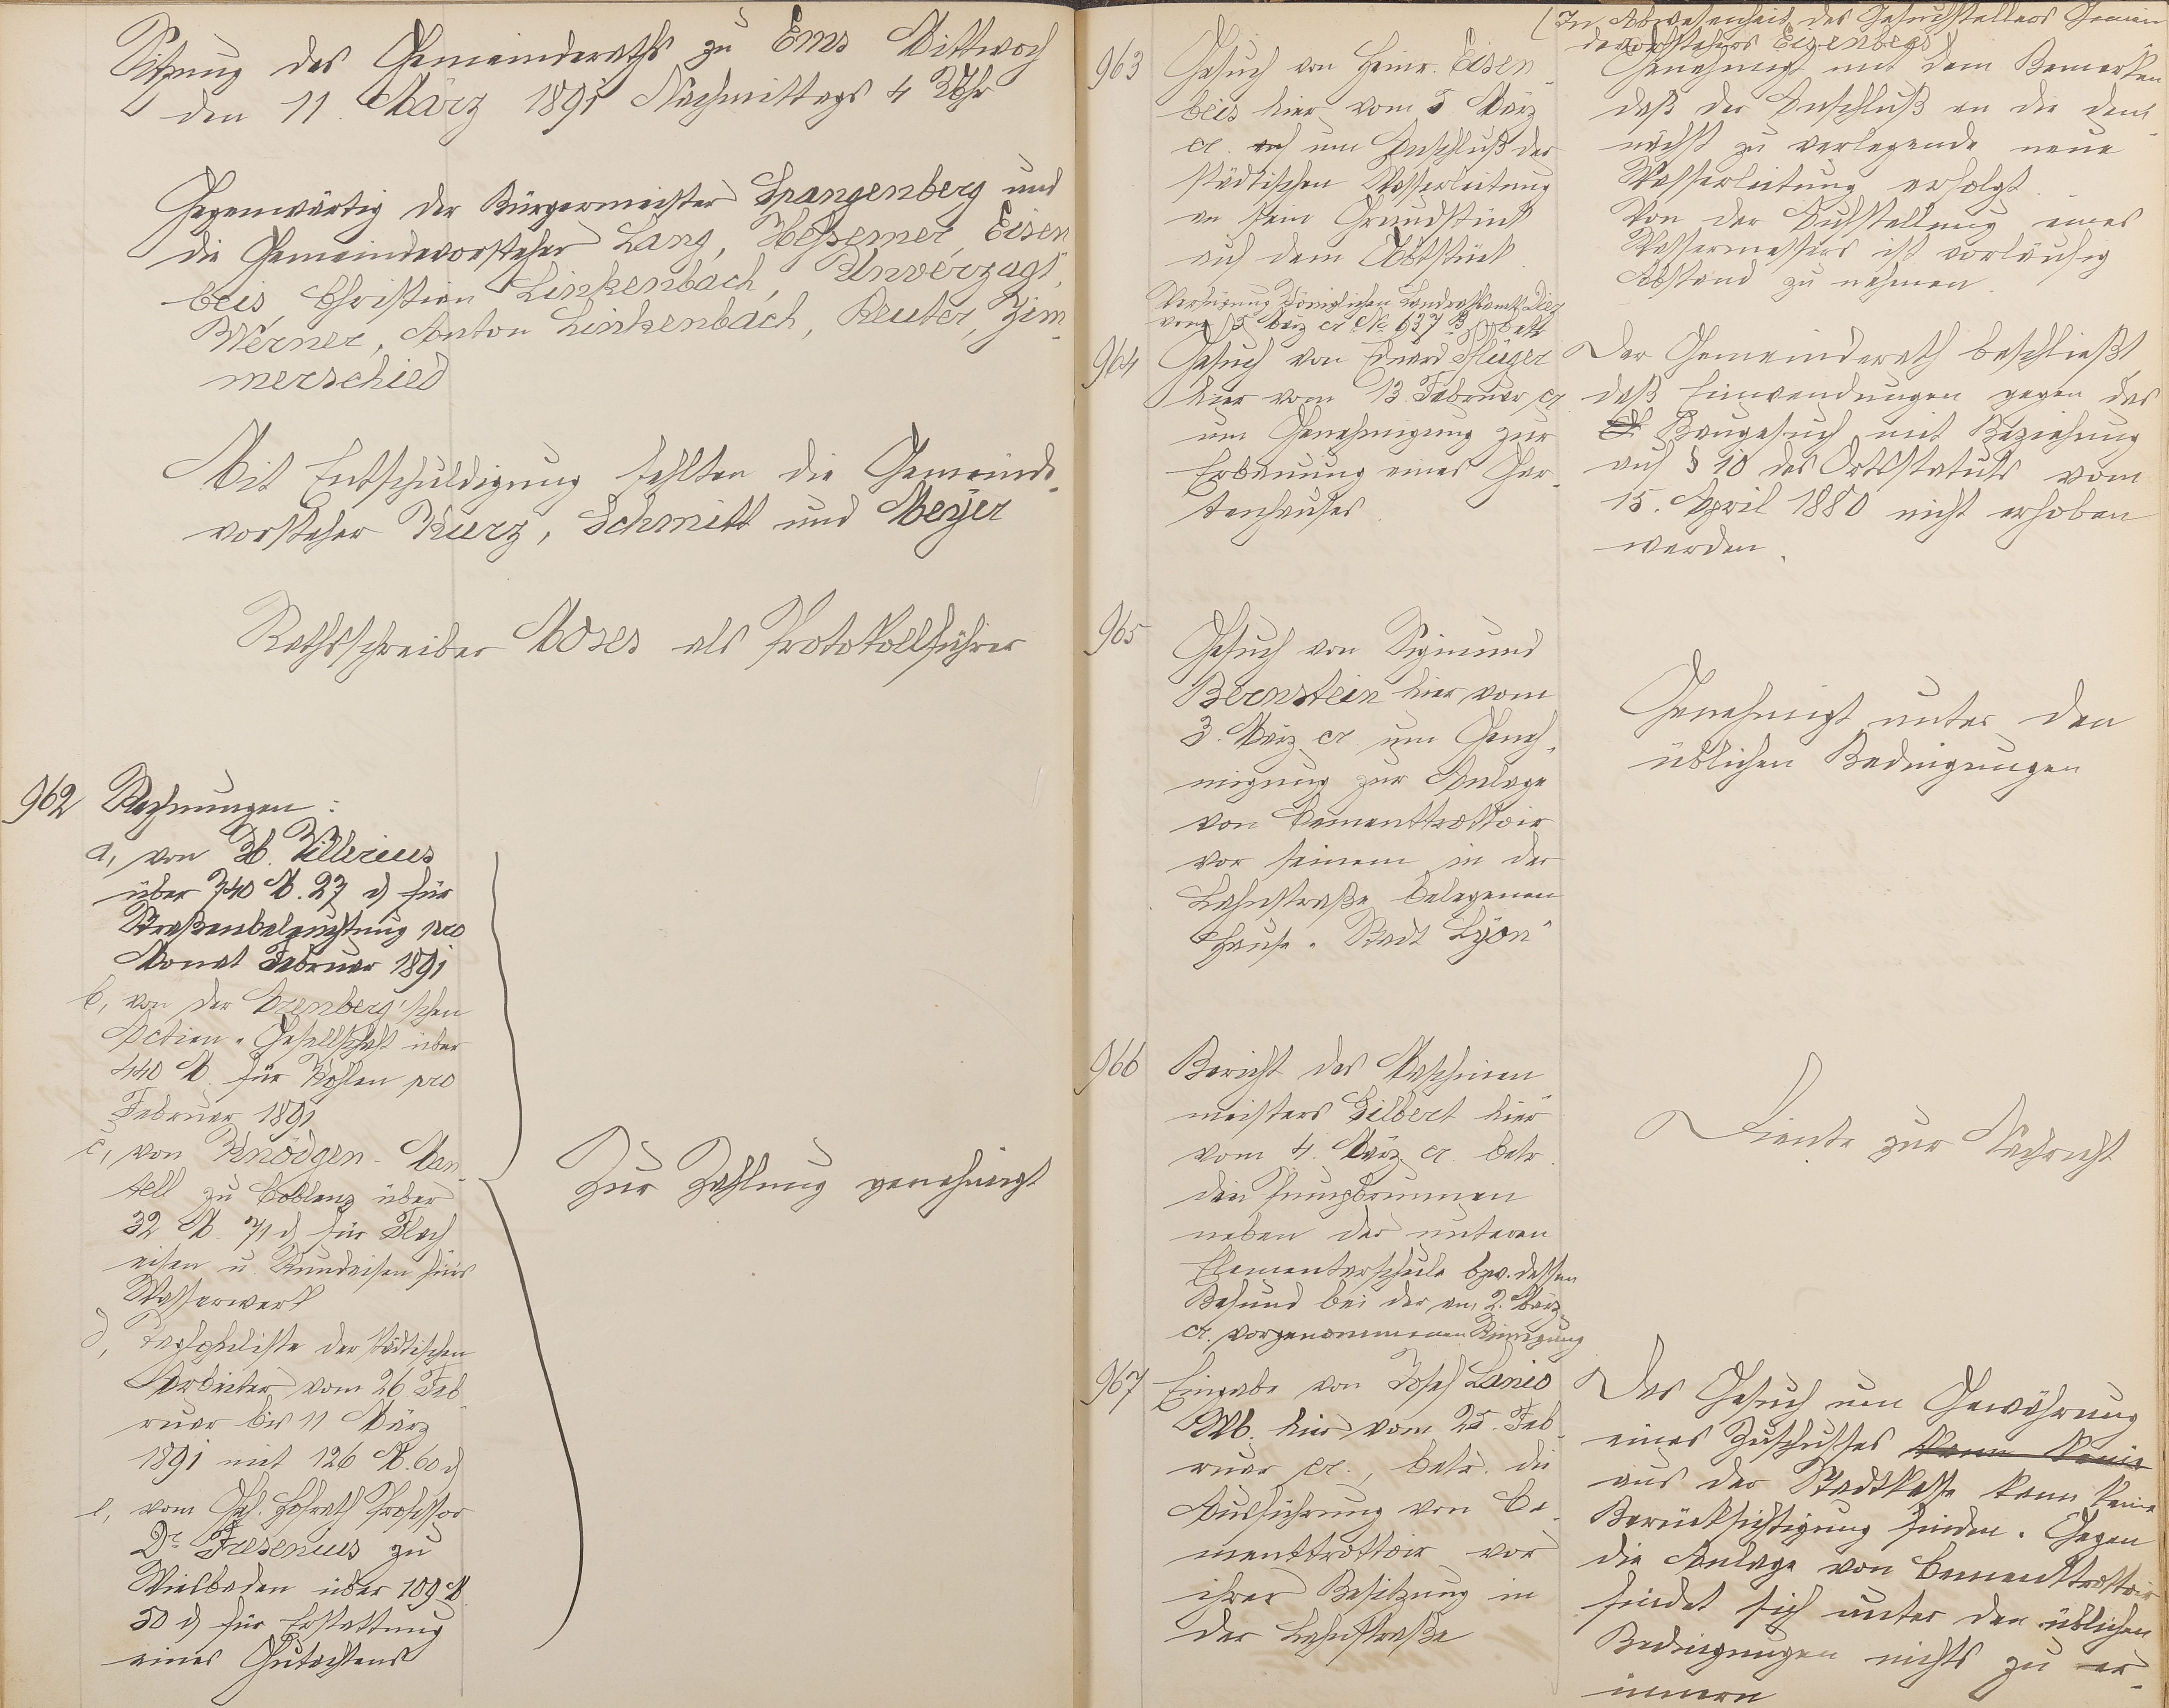 Sitzung des Gemeinderaths zu Ems Mittwoch
den 11. März 1891 Nachmittags 4 Uhr
Gegenwärtig der Bürgermeister Spangenberg und
die Gemeindevorsteher Lang, Heßemer Eisen
beis, Christian Linkenbach, Unverzagt,
Werner, Anton Linkenbach, Reuter, Zim-
merschied
Mit Entschuldigung fehlten die Gemeinde-
vorsteher Kurz, Schmitt und Meyer
Rathsschreiber Moses als Protokollführer
962 Rechnungen:
a, von H. Villerius
über 740 M. 27 d für
Straßenbeleuchtung pro
Monat Februar 1891
b, von der Arenberg'schen
Actien-Gesellschaft über
440 M. für Kohlen pro
Februar 1891
c, von Knödgen-Man-
tell zu Coblenz über
32 M. 71 d für Flach
eisen u. Rundeisen fürs
Wasserwerk
d, der städtischen
Arbeiter vom 26 Feb-
ruar bis 11 März
1891 mit 126 M. 60 d
e, vom Geh. Hofrath Professor
Dr. Fresenius zu
Wiesbaden über 109 M.
50 d für Erstattung
eines Gutachtens
Zur Zahlung genehmigt
963 Gesuch von Heinr. Eisen-
beis hier vom 5 März
cr. um Anschluß der
städtischen Wasserleitung
an sein Grundstück
auf dem Obstück
(In Abwesenheit des Gesuchstellers Gemein
devorstehers Eisenbeis)
Genehmigt mit dem Bemerken
daß der Anschluß an die dem-
nächst zu verlegende neue
Wasserleitung erfolgt.
Von der Aufstellung eines
Wassermessers ist vorläufig
Abstand zu nehmen.
Verfügung Königlichen Landrathsamts Diez
vom 5 März cr No 637 B betr
964 Gesuch von Eduard Pflüger
hier vom 13. Februar cr
um Genehmigung zur
Erbauung eines Gar-
tenhauses.
Der Gemeinderath beschließt
daß Einwendungen gegen das
Baugesuch mit Beziehung
auf § 10 des Ortsstatuts vom
15. April 1880 nicht erhoben
werden.
965 Gesuch von Sigmund
Bernstein hier vom
3. März cr. um Geneh-
migung zur Anlage
von Cementtrottoir
vor seinem in der
Lahnstraße belegenen
Hause "Stadt Lyon"
Genehmigt unter den
üblichen Bedingungen
966 Bericht des Maschinen
meisters Gilbert hier
vom 4. März cr. betr.
den Pumpbrunnen
neben der unteren
Elementarschule bzw. dessen
Befund bei der am 2. März
cr. vorgenommenen Reinigung
Diente zur Nachricht
967 Eingabe von Josef Lanio
Wb. hier vom 25. Feb-
ruar cr., betr. die
Ausführung von Ce-
menttrottoir vor
ihrer Besitzung in
der Lahnstraße
Das Gesuch um Gewährung
eines Zuschusses kann keine
aus der Stadtkasse kann keine
Berücksichtigung finden. Gegen
die Anlage von Cementtrottoir
findet sich unter den üblichen
Bedingungen nichts zu er-
innern